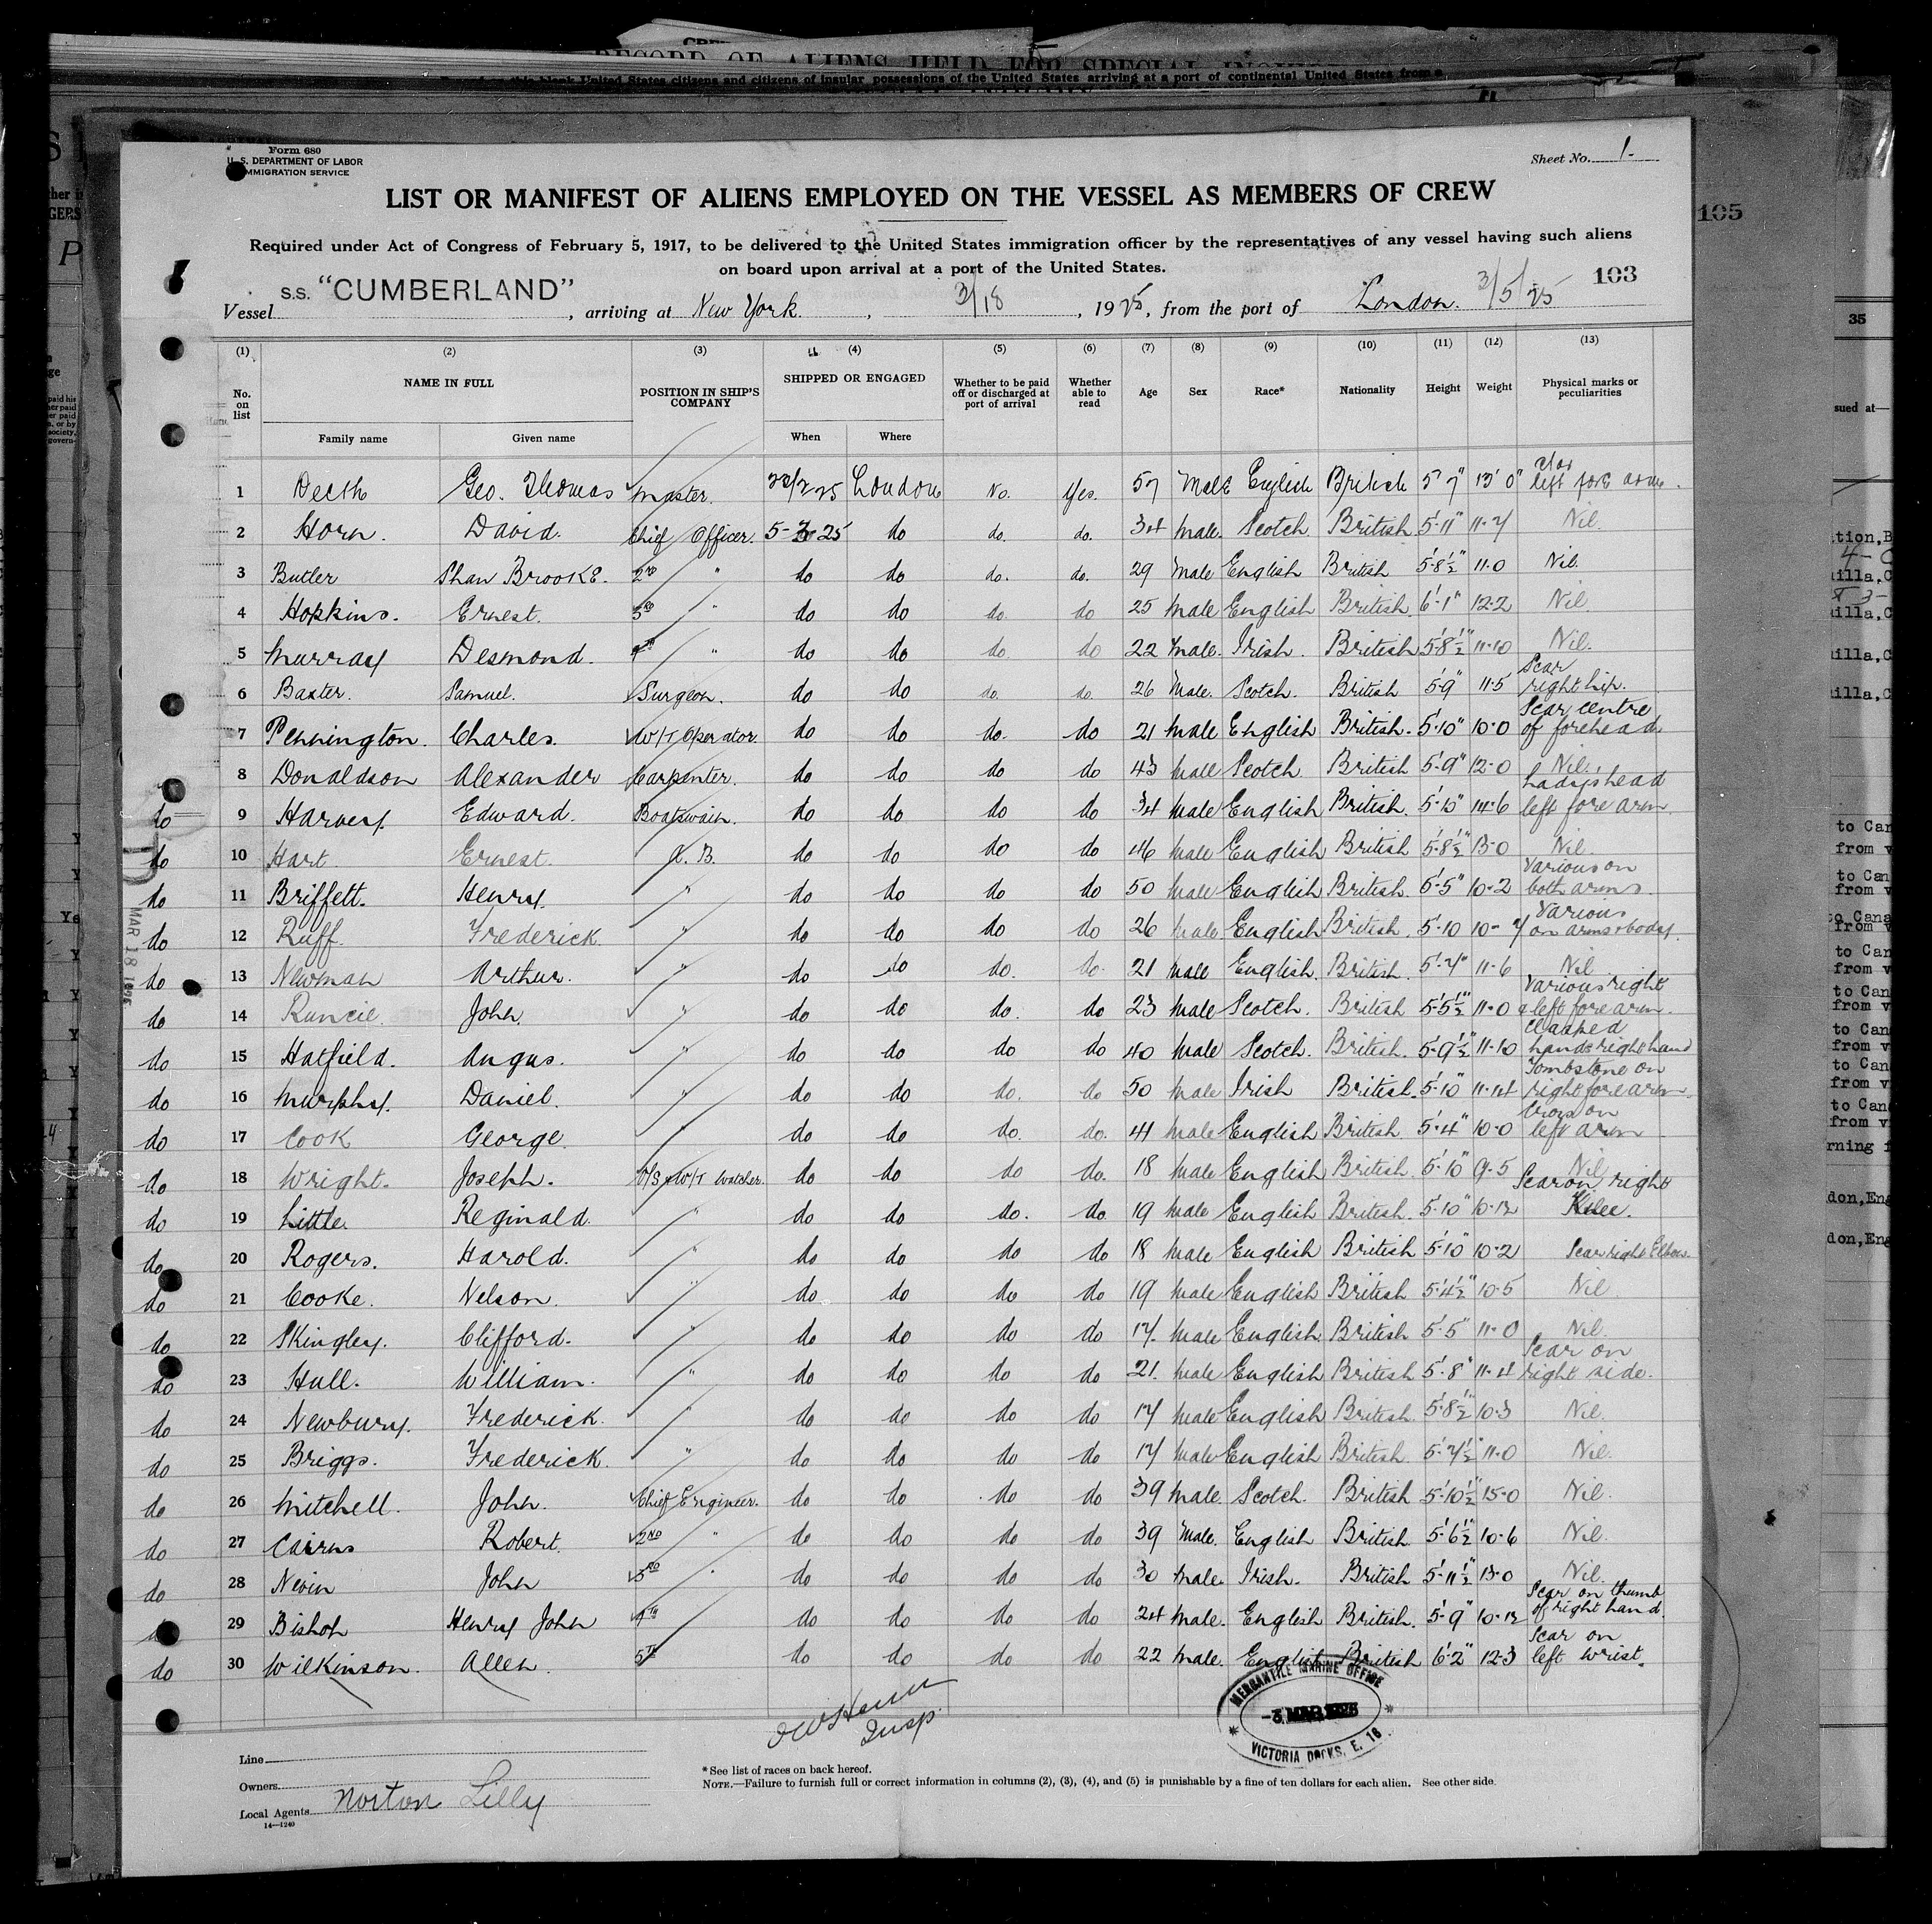 RECORD OF ALIENS HELD FOR SPECIAL
United States citizens and citizens of insular possessions of the United States arriving at a port of continental United States from a
Form 680
U. S. DEPARTMENT OF LABOR
IMMIGRATION SERVICE
Sheet No. 1.
LIST OR MANIFEST OF ALIENS EMPLOYED ON THE VESSEL AS MEMBERS OF CREW
105
Required under Act of Congress of February 5, 1917, to be delivered to the United States immigration officer by the representatives of any vessel having such aliens
on board upon arrival at a port of the United States.
103
Vessel S.S. "CUMBERLAND", arriving at New York, 3/18, 1925, from the port of London. 3/5/25
(1) (2) (3) (4) (5) (6) (7) (8) (9) (10) (11) (12) (13)
No. on list NAME IN FULL POSITION IN SHIP'S COMPANY SHIPPED OR ENGAGED Whether to be paid off or discharged at port of arrival Whether able to read Age Sex Race* Nationality Height Weight Physical marks or peculiarities
Family name Given name When Where
1 Geo. Thomas Master. London No. Yes. 57 Male English British 5' 7" 13' 0" left fore arm.
2 Horn. David. Chief Officer. 5-3-25 do do. do. 34 Male. Scotch British 5'-11" 11-7 Nil.
3 Butler Shan Brooke. 2ND " do do do. do. 29 Male English British 5'-8½" 11-0 Nil.
4 Hopkins. Ernest. 3RD " do do do. do 25 Male English British 6'-1" 12-2 Nil
5 Murray Desmond. 4TH " do do do do 22 Male. Irish. British 5'-8½" 11-10 Nil.
6 Baxter. Samuel. Surgeon. do do do. do. 26 Male. Scotch. British 5'-9" 11-5 Scar right hip.
7 Pennington. Charles. W/T Operator. do do do. do 21 Male English British. 5'-10" 10-0 Scar centre of forehead
8 Donaldson Alexander Carpenter. do do do do 43 Male Scotch British 5'-9" 12-0 Nil.
do 9 Harvey. Edward. Boatswain. do do do do 34 Male English British. 5'-10" 14-6 Lady's head left fore arm
do 10 Hart. Ernest. A. B. do do do do 46 Male English British 5'-8½" 13-0 Nil.
do 11 Briffett. Henry. " do do do do 50 Male English British. 5'-5" 10-2 Various on both arms.
do 12 Ruff. Frederick. " do do do do 26 Male. English British. 5'-10 10-7 Various on arms & body.
do 13 Newman Arthur. " do do do. do. 21 Male English. British. 5'-7" 11-6 Nil
do 14 Runcie. John. " do do do. do 23 Male Scotch. British 5'-5½" 11-0 Various right & left fore arm.
do 15 Hatfield. Angus. " do do do do 40 Male Scotch. British. 5'-9½" 11-10 Clasped hands right hand
do 16 Murphy. Daniel. " do do do. do 50 Male Irish British. 5'-10" 11-14 Tombstone on right fore arm.
do 17 Cook George. " do do do. do. 41 Male English British. 5'-4" 10-0 Cross on left arm
do 18 Wright. Joseph. O/S & W/T Watcher. do do do do. 18 Male English British. 5'-10" 9-5 Nil
do 19 Little. Reginald. " do do do. do. 19 Male English British. 5'-10" 10-12 Scar on right Knee.
do 20 Rogers. Harold. " do do do do 18 Male English British 5'-10" 10-2 Scar right Elbow.
do 21 Cooke. Nelson. " do do do do 19 Male English British 5'-4½" 10-5 Nil
do 22 Skingley. Clifford. " do do do do 17. Male English British 5'-5" 11-0 Nil.
do 23 Hull. William. " do do do do 21. Male English British 5'-8" 11-4 Scar on right side.
do 24 Newbury. Frederick. " do do do do 17 Male English British 5'-8½" 10-3 Nil.
do 25 Briggs. Frederick. " do do do do 17 Male English British. 5'-7½" 11-0 Nil.
do 26 Mitchell. John. Chief Engineer. do do do do 39 Male. Scotch. British 5'-10½" 15-0 Nil.
do 27 Cairns Robert. 2ND " do do do do 39 Male. English British. 5'-6½" 10-6 Nil.
do 28 Nevin John 3RD " do do do do 30 Male. Irish. British 5'-11½" 13-0 Nil.
do 29 Bishop Henry John 4TH do do do do 24 Male. English British. 5'-9" 10-12 Scar on thumb of right hand.
do 30 Wilkinson. Allen. 5TH do do do do 22 Male. English British 6'-2" 12-3 Scar on left wrist.
MAR 18 1925
Insp.
MERCANTILE MARINE OFFICE
VICTORIA DOCKS, E. 16
Line
Owners
Local Agents Norton Lilly
14—1240
*See list of races on back hereof.
NOTE.—Failure to furnish full or correct information in columns (2), (3), (4), and (5) is punishable by a fine of ten dollars for each alien. See other side.